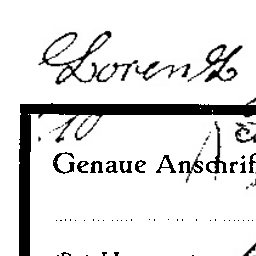 Lorenz
10
Genaue Anschrif